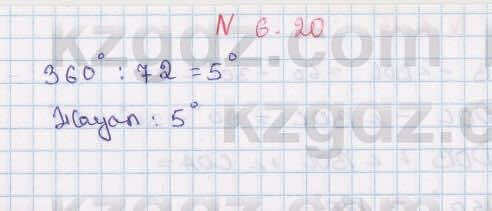 N 6.20
360° : 72 = 5°
Жауап : 5°
kzgdz.com
kzgdz.com